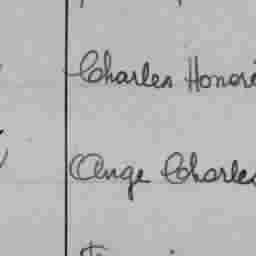 Charles Honoré
Ange Charles